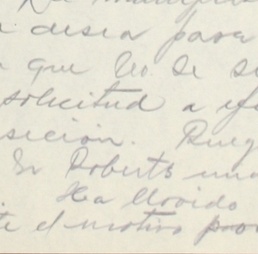 desea para
que Ud. se
solicitud a
sición. Ruego
Sr Roberts una
Ha llovido
te el motivo